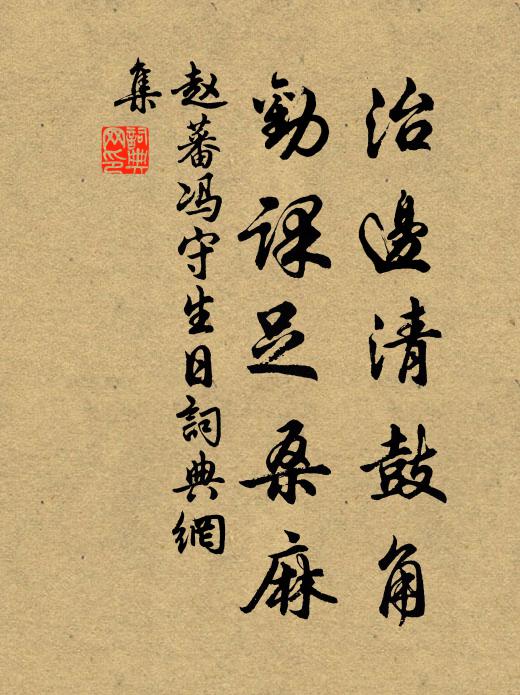 治邊清鼓角
勸課足桑麻
赵蕃冯守生日詞典網
集
詞典網印